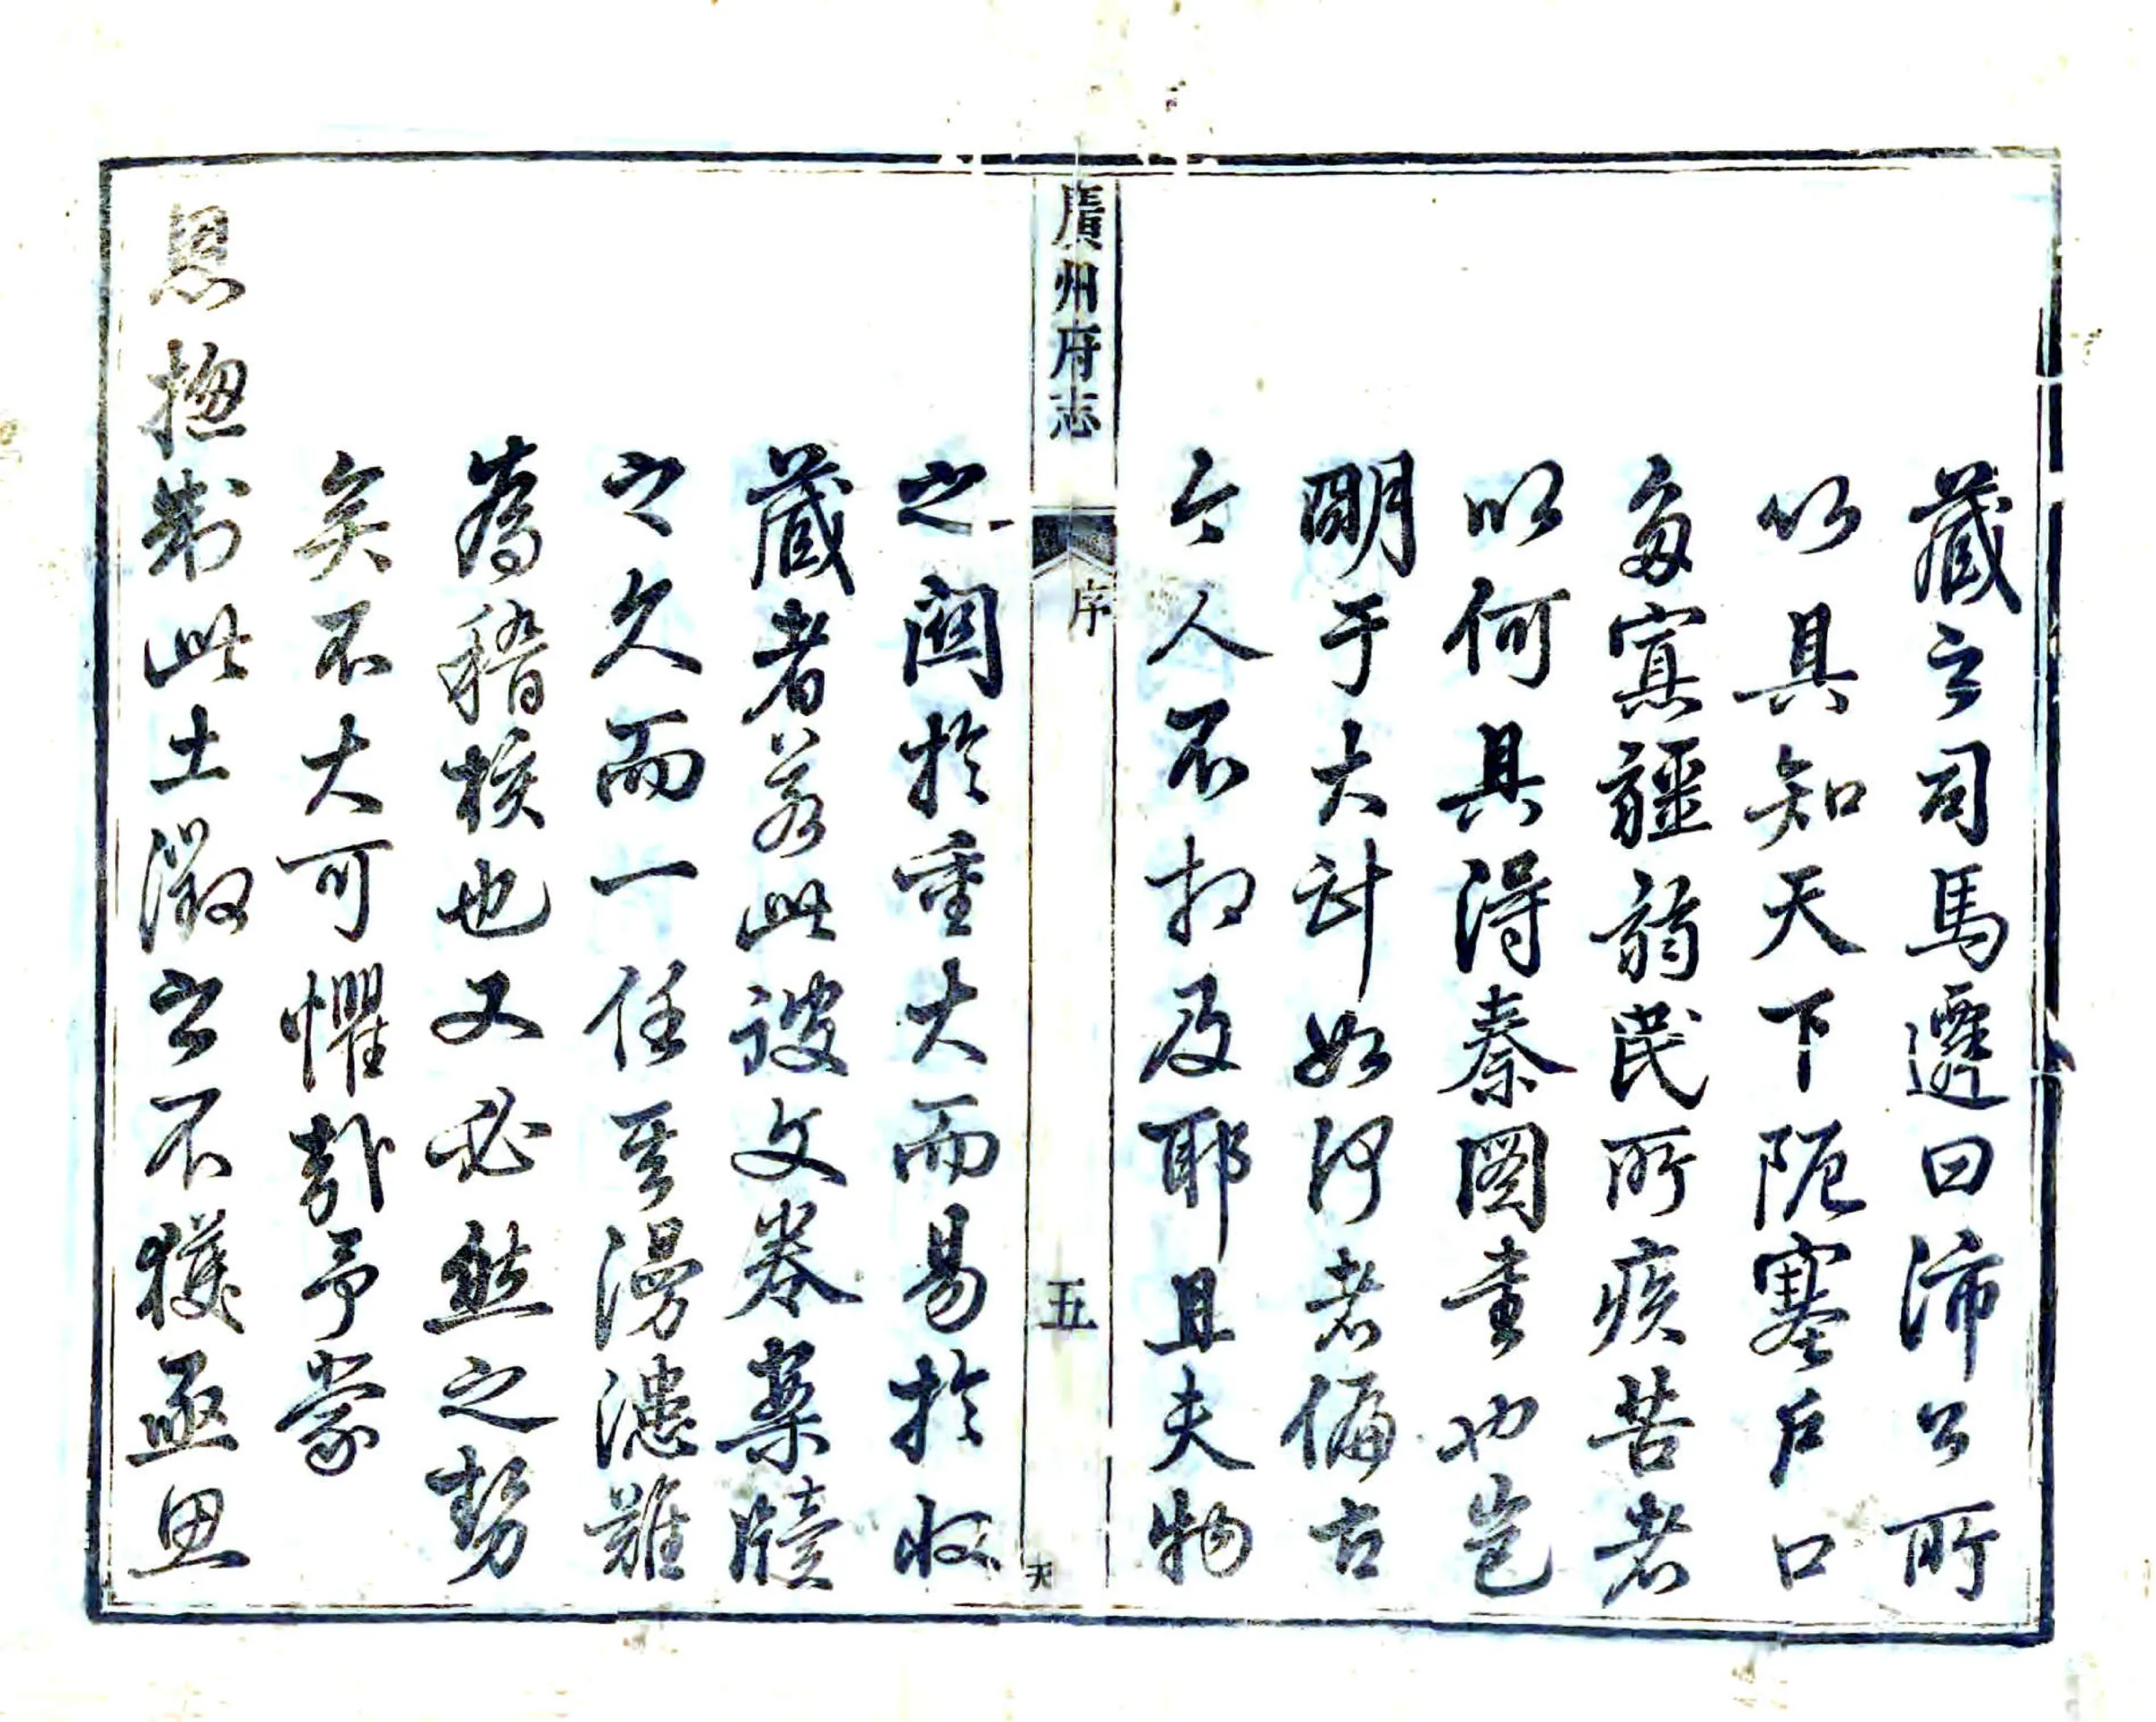 藏之司馬遷曰沛公所
以具知天下阨塞戶口
多寡疆弱民所疾苦者
以何具得秦圖書也豈
明于大計如何者偏古
今人不相及耶且夫物
廣州府志 序 五 天
之關於重大而易於收
藏者若此設文卷案牘
之久而一任其漫漶難
為稽核也又必然之勢
矣不大可懼歟予蒙
恩揔制此土徵之不獲亟思